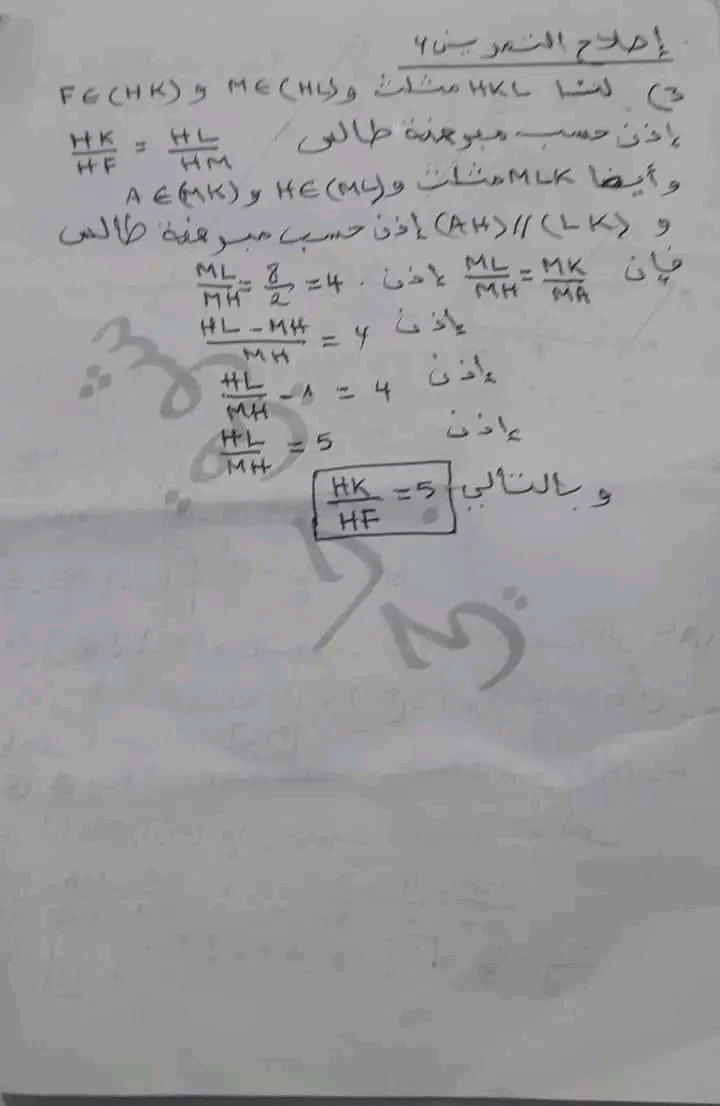 إصلاح التمرين 4
3) لنا HKL مثلث و M∈(HL) و F∈(HK)
إذن حسب مبرهنة طالس HK/HF = HL/HM
و أيضا MLK مثلث و H∈(ML) و A∈(MK)
و (AH)//(LK) إذن حسب مبرهنة طالس
فإن ML/MH = MK/MA إذن . ML/MH = 8/2 = 4
إذن HL - MH/MH = 4
إذن HL/MH - 1 = 4
إذن HL/MH = 5
و بالتالي HK/HF = 5